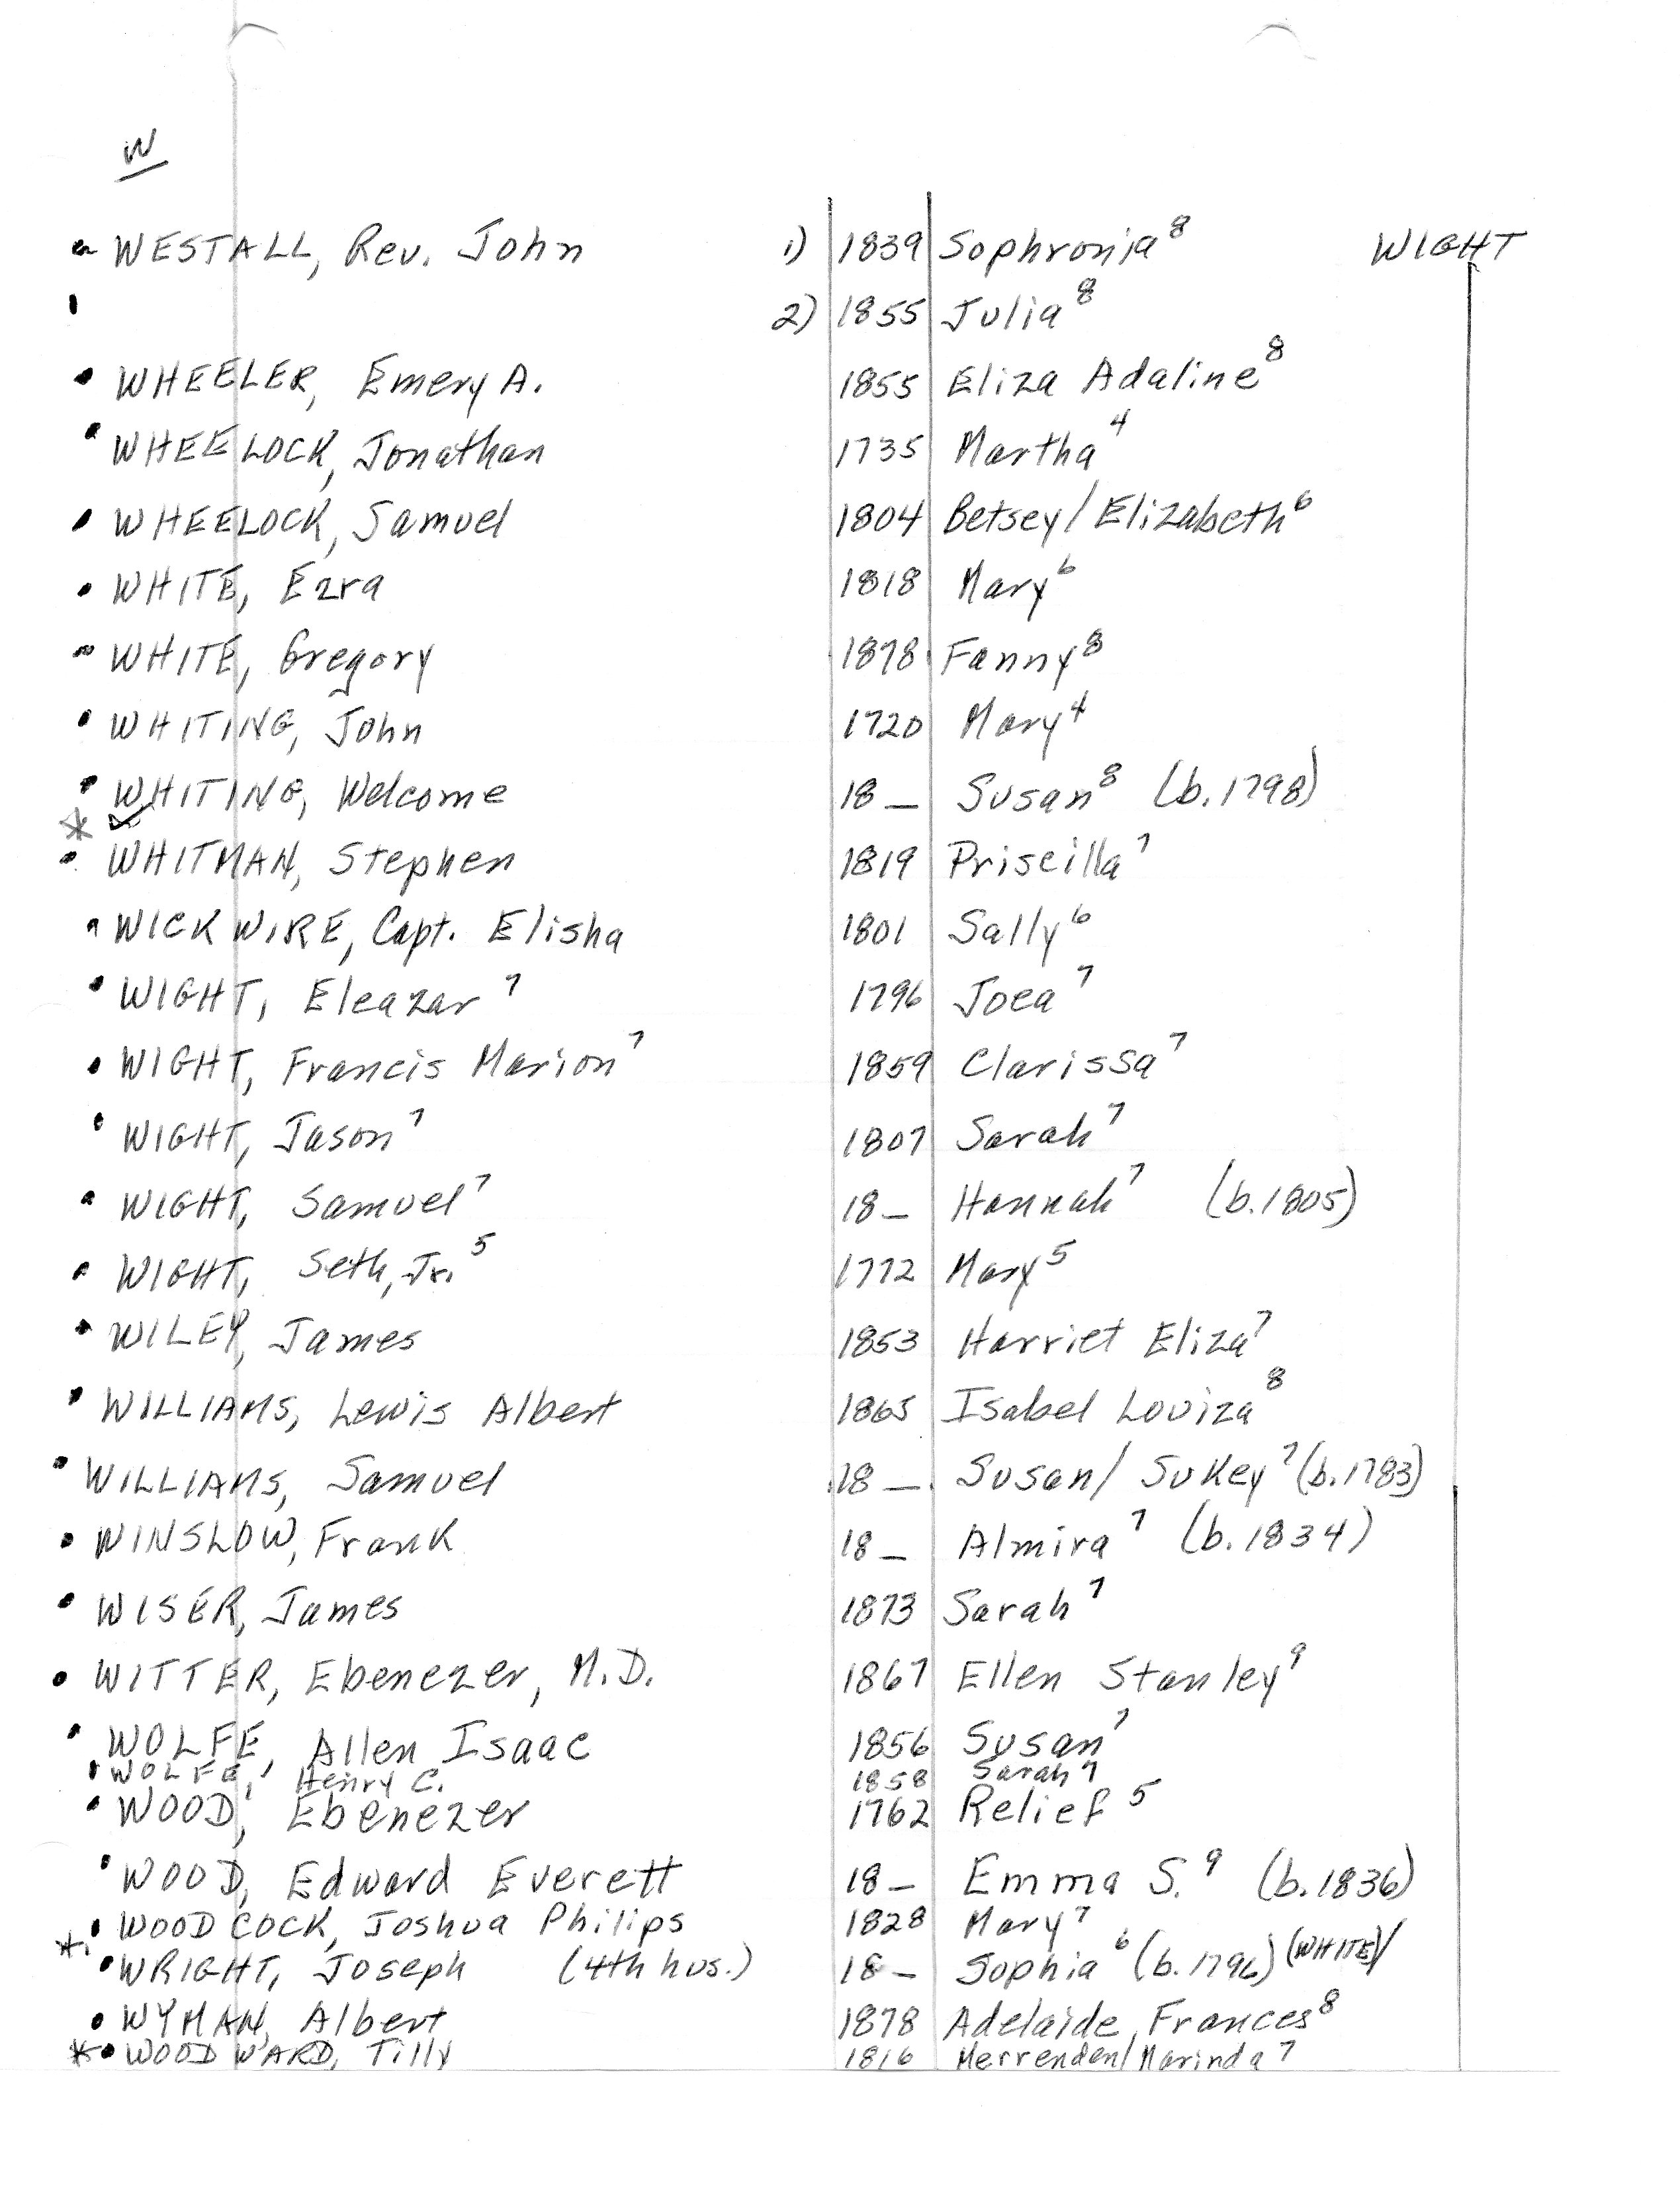 W
WESTALL, Rev. John 1) 1839 Sophronia⁸ WIGHT
2) 1855 Julia⁸
WHEELER, Emery A. 1855 Eliza Adaline⁸
WHEELOCK, Jonathan 1735 Martha⁴
WHEELOCK, Samuel 1804 Betsey/Elizabeth⁶
WHITE, Ezra 1818 Mary⁶
WHITE, Gregory 1878 Fanny⁸
WHITING, John 1720 Mary⁴
WHITING, Welcome 18_ Susan⁸ (b.1798)
* WHITMAN, Stephen 1819 Priscilla⁷
WICKWIRE, Capt. Elisha 1801 Sally⁶
WIGHT, Eleazar⁷ 1796 Joea⁷
WIGHT, Francis Marion⁷ 1859 Clarissa⁷
WIGHT, Jason⁷ 1807 Sarah⁷
WIGHT, Samuel⁷ 18_ Hannah⁷ (b.1805)
WIGHT, Seth, Jr.⁵ 1772 Mary⁵
WILEY, James 1853 Harriet Eliza⁷
WILLIAMS, Lewis Albert 1865 Isabel Loviza⁸
WILLIAMS, Samuel 18_ Susan/Sukey⁷ (b.1783)
WINSLOW, Frank 18_ Almira⁷ (b.1834)
WISER, James 1873 Sarah⁷
WITTER, Ebenezer, M.D. 1867 Ellen Stanley⁹
WOLFE, Allen Isaac 1856 Susan⁷
WOLFE, Henry C. 1858 Sarah⁷
WOOD, Ebenezer 1762 Relief⁵
WOOD, Edward Everett 18_ Emma S.⁹ (b.1836)
WOODCOCK, Joshua Philips 1828 Mary⁷
* WRIGHT, Joseph (4th hus.) 18_ Sophia⁶ (b.1796) (WHITE)/
WYMAN, Albert 1878 Adelaide Frances⁸
* WOODWARD, Tilly 1816 Merrenden/Marinda⁷